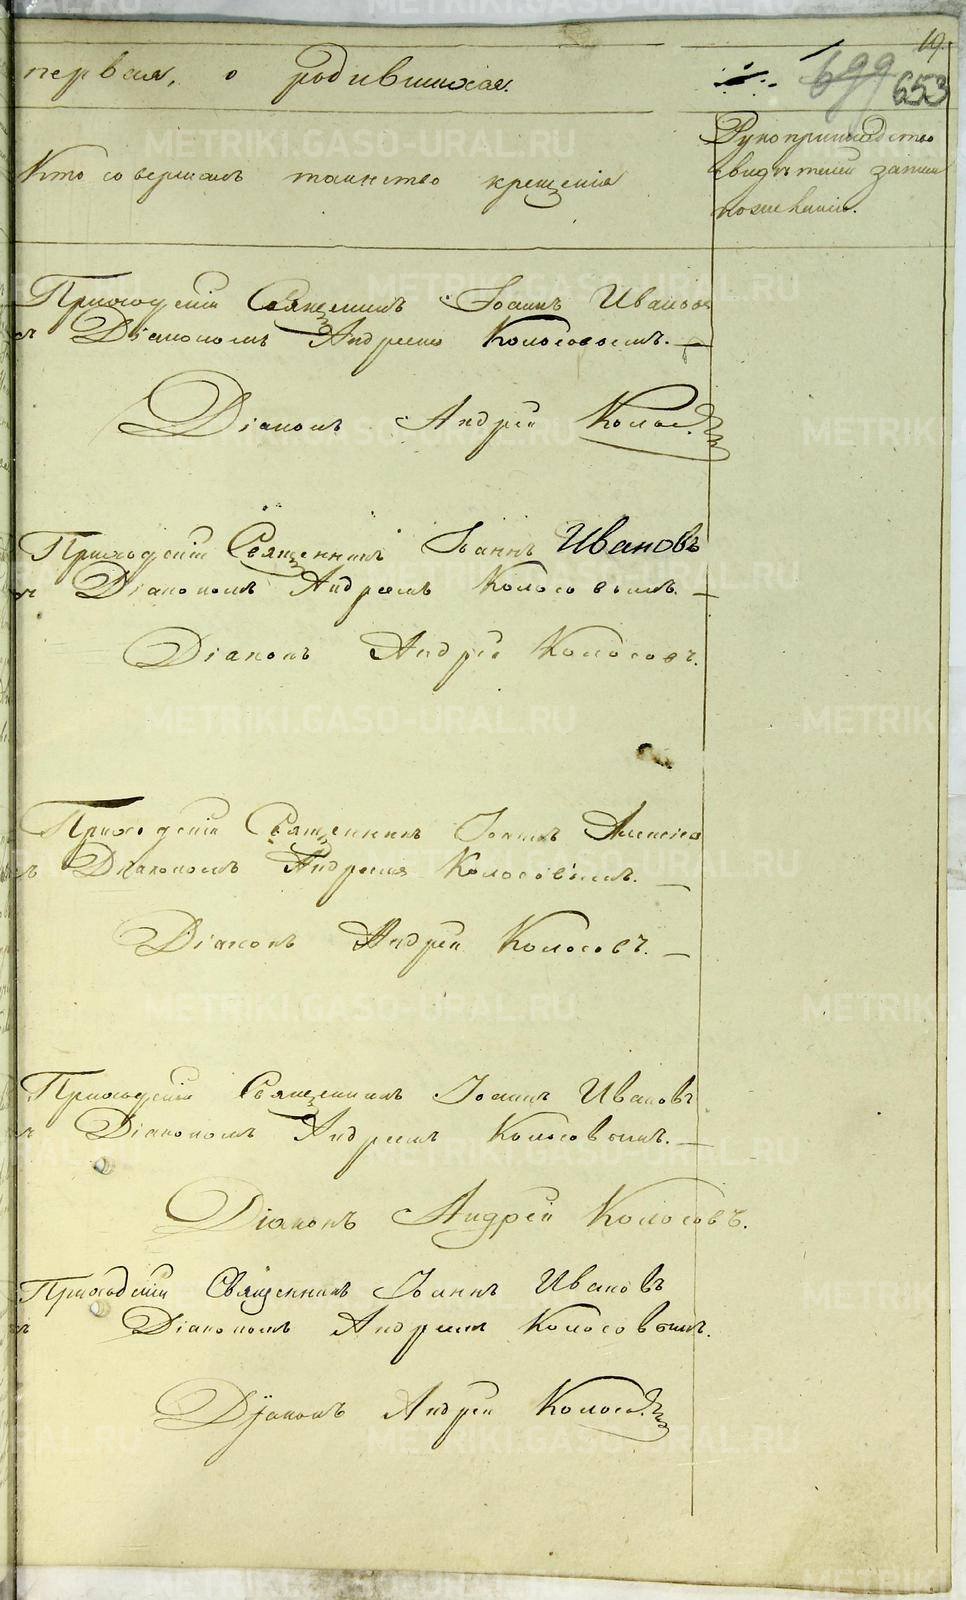 19.
первая, о родившихся.
699 653
Кто совершалъ таинство крещенія
Рукоприкладство
свидѣтелей записи
по желанію.
Приходскій Священникъ Іоаннъ Ивановъ
съ Діакономъ Андреемъ Колосовымъ.
Діаконъ Андрей Колосовъ
Приходскій Священникъ Іоаннъ Ивановъ
съ Діакономъ Андреемъ Колосовымъ.
Діаконъ Андрей Колосовъ.
Приходскій Священникъ Іоаннъ
съ Діакономъ Андреемъ Колосовымъ.
Діаконъ Андрей Колосовъ.
Приходскій Священникъ Іоаннъ Ивановъ
съ Діакономъ Андреемъ Колосовымъ.
Діаконъ Андрей Колосовъ.
Приходскій Священникъ Іоаннъ Ивановъ
съ Діакономъ Андреемъ Колосовымъ.
Діаконъ Андрей Колосовъ
METRIKI.GASO-URAL.RU